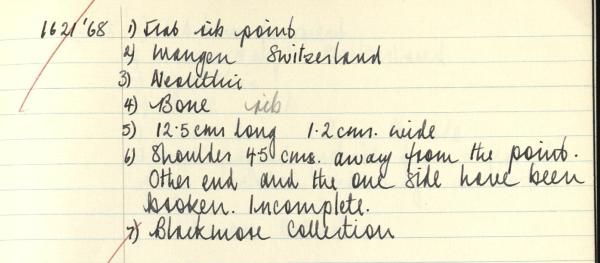 1621'68 1) Flat rib point
2) Mangen Switzerland
3) Neolithic
4) Bone rib
5) 12.5 cms long 1.2 cms. wide
6) Shoulder 4.5 cms. away from the point.
Other end and the one side have been
broken. Incomplete.
7) Blackmore Collection